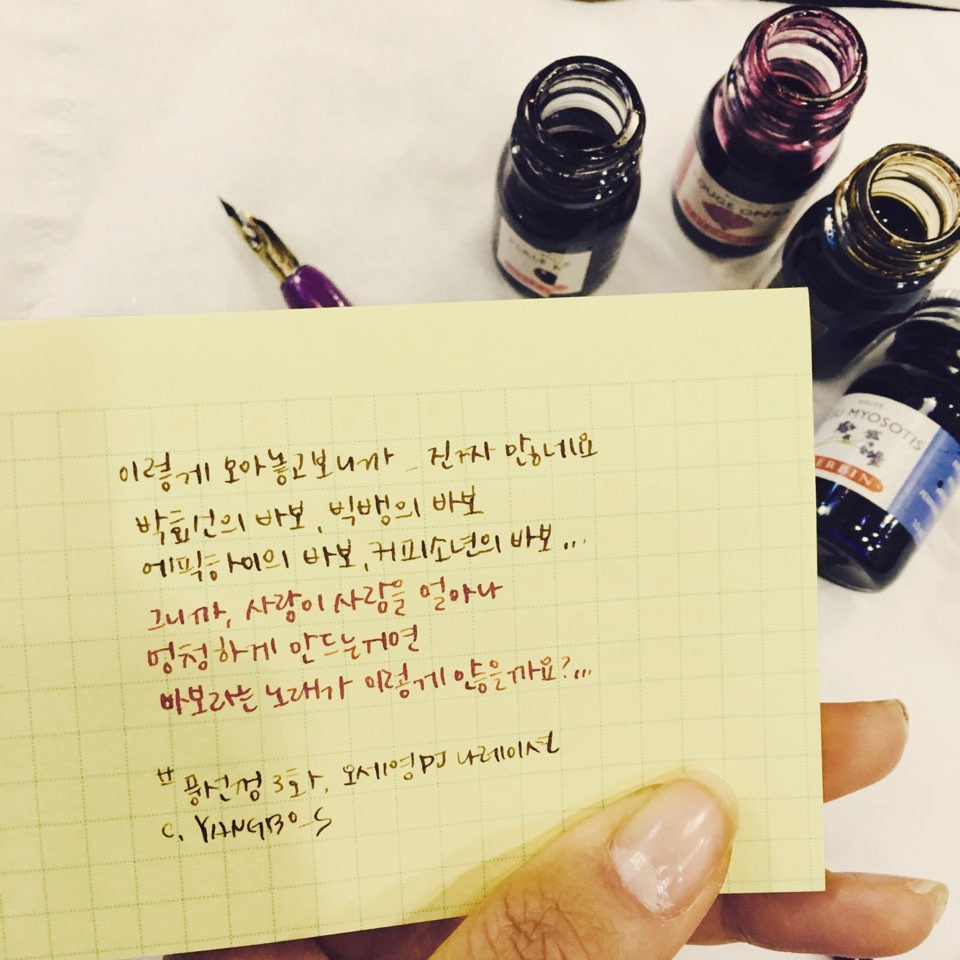 PERLE N
ROUGE OPÉRA
EU MYOSOTIS
HERBIN
이렇게 모아놓고보니까 _ 진짜 많네요
박효신의 바보, 빅뱅의 바보
에픽하이의 바보, 커피소년의 바보...
그니까, 사랑이 사람을 얼마나
멍청하게 만드는거면
바보라는 노래가 이렇게 많을까요?...
# 풍선껌 3화, 오세영PD 나레이션
c. YANGBO_S